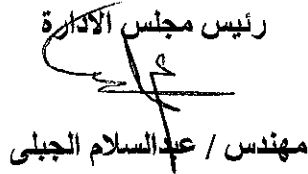 رئيس مجلس الادارة
مهندس / عبدالسلام الجبلى